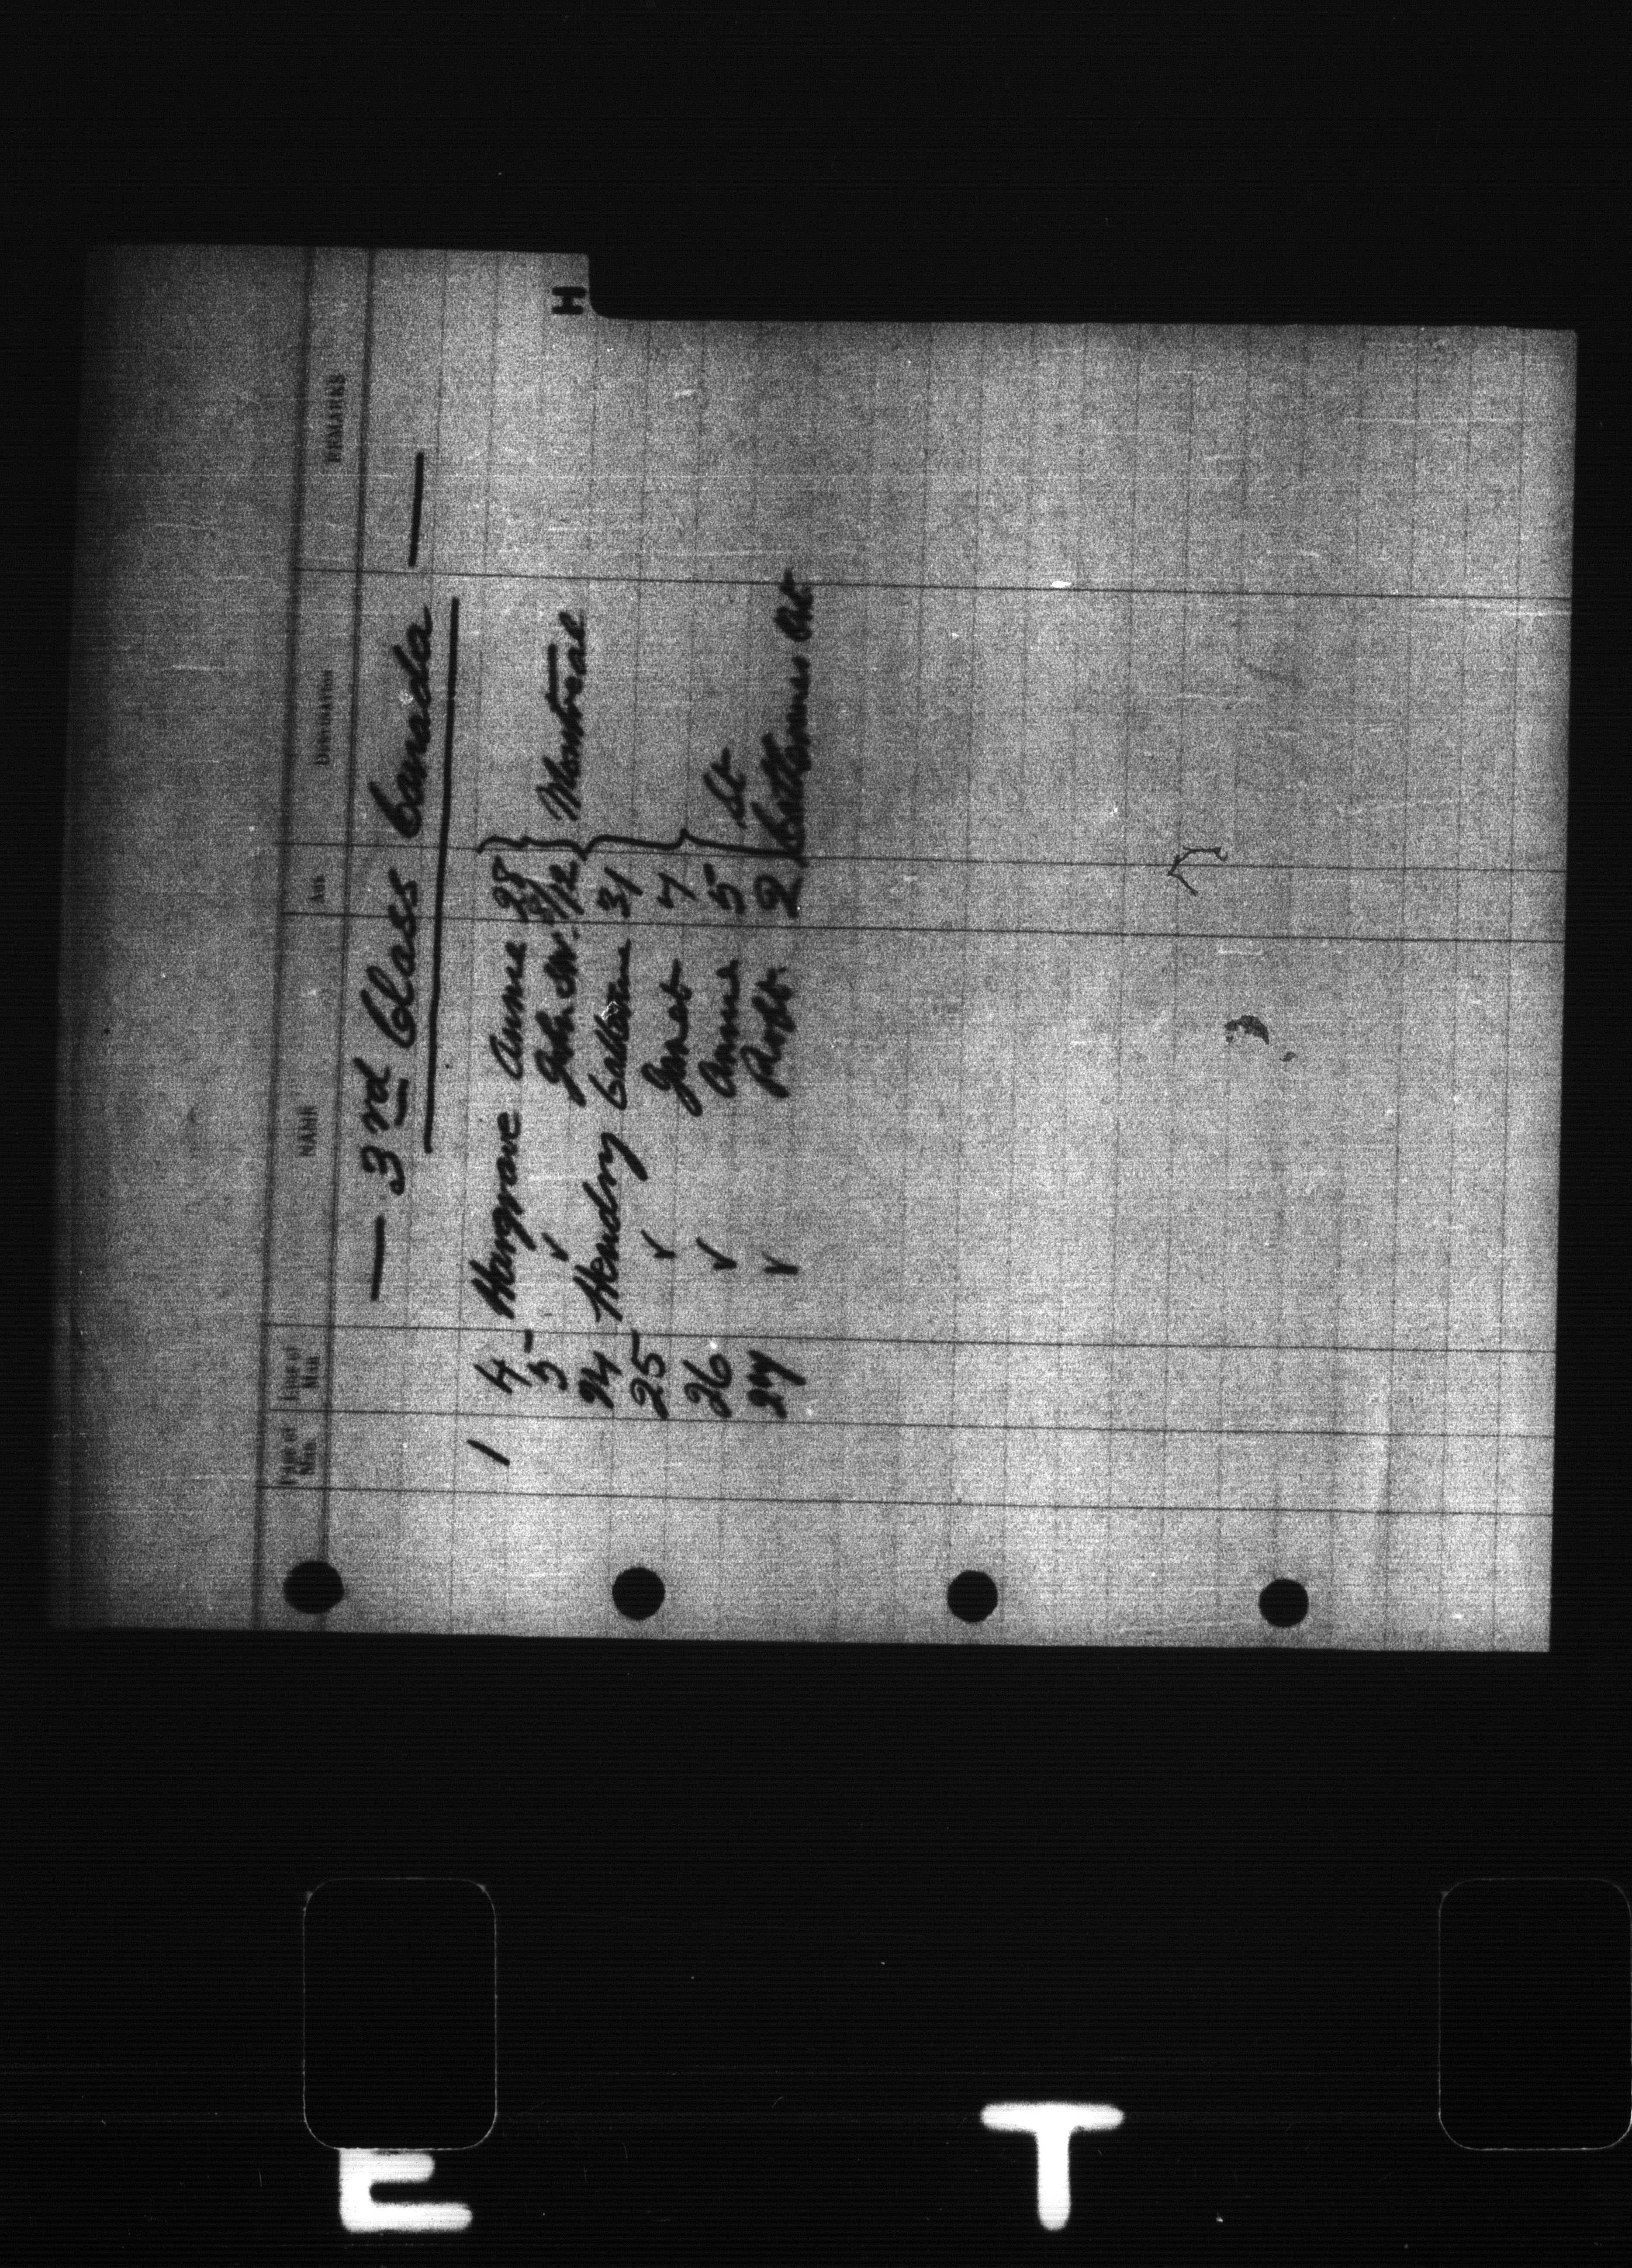 H
Page of Mfst. Line of Mfst. NAME AGE DESTINATION REMARKS
— 3rd Class Canada —
1 4 Hargrave Anne 28
5 ✓ John W. 3/12 Montreal
24 Hendry Catherine 31
25 ✓ Janet 7
26 ✓ Anne 5 St
27 ✓ Robt. 2 Catharines Ont
E T